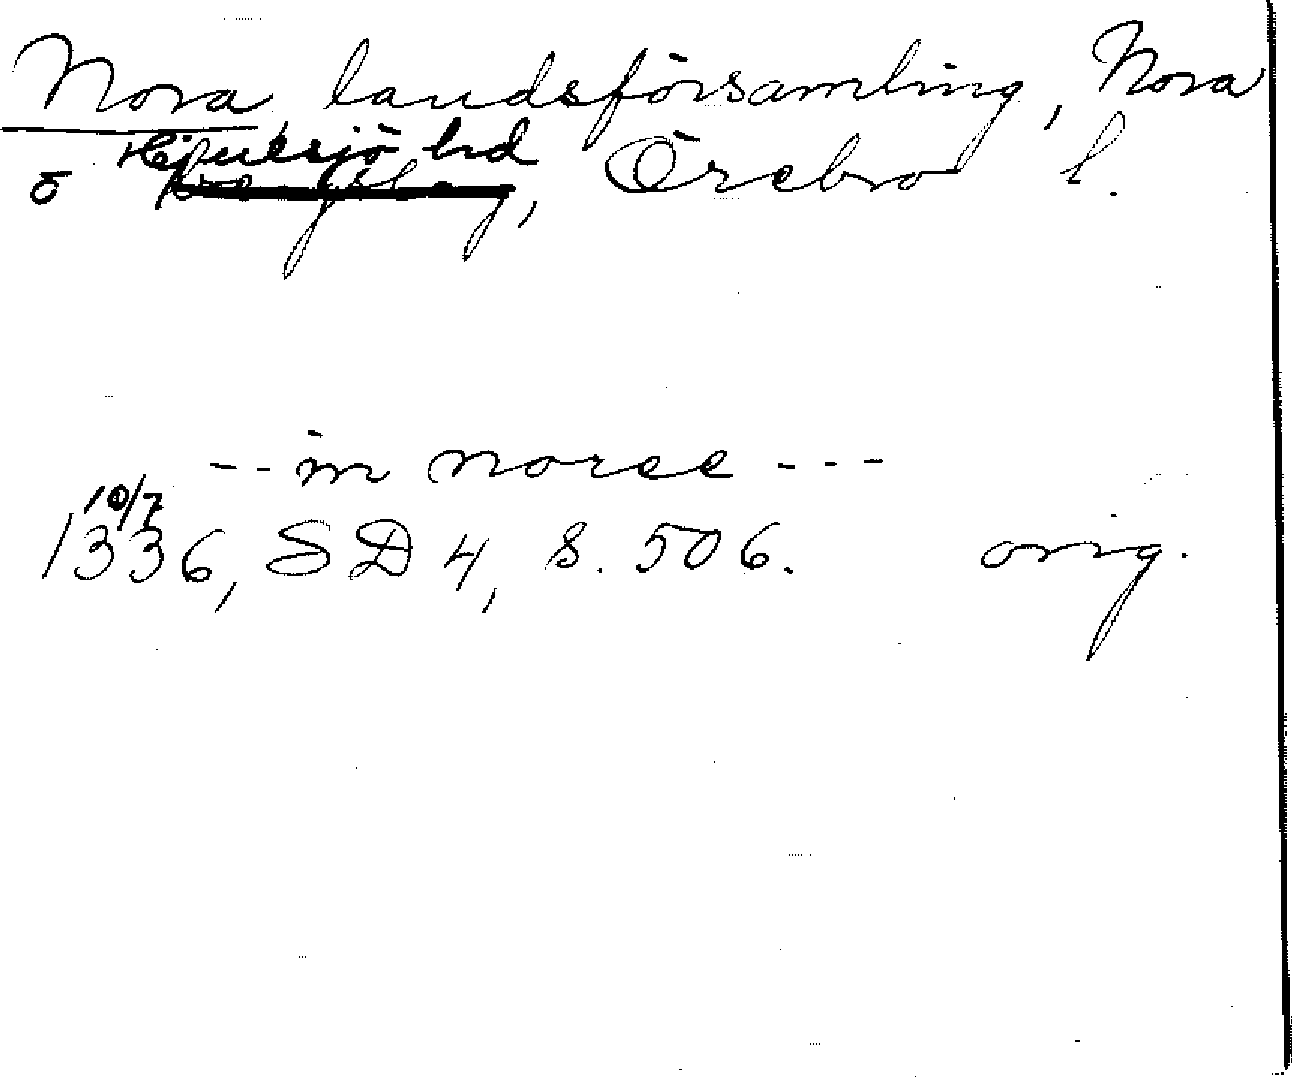 Nora landsförsamling, Nora
o Hjulsjö hd, Örebro l.
-- in noree ---
10/7
1336, SD 4, s. 506. orig.